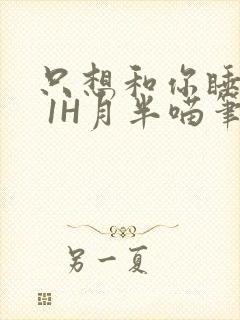 只想和你睡
1H月半喵笔
另一夏